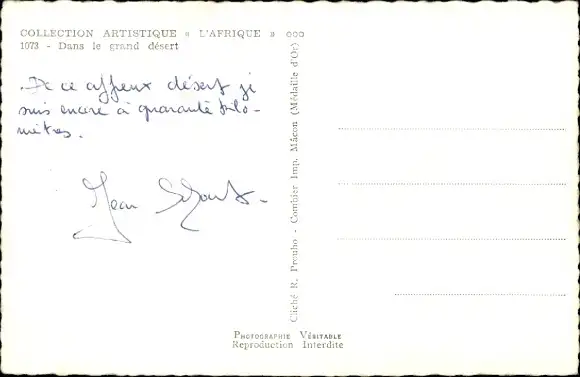 COLLECTION ARTISTIQUE « L'AFRIQUE » ooo
1073 - Dans le grand désert
De ce affreux désert ji
suis encore à quarante kilo-
mètres.
Jean
Cliché R. Prouho - Combier Imp. Mâcon (Médaille d'Or)
PHOTOGRAPHIE VÉRITABLE
Reproduction Interdite